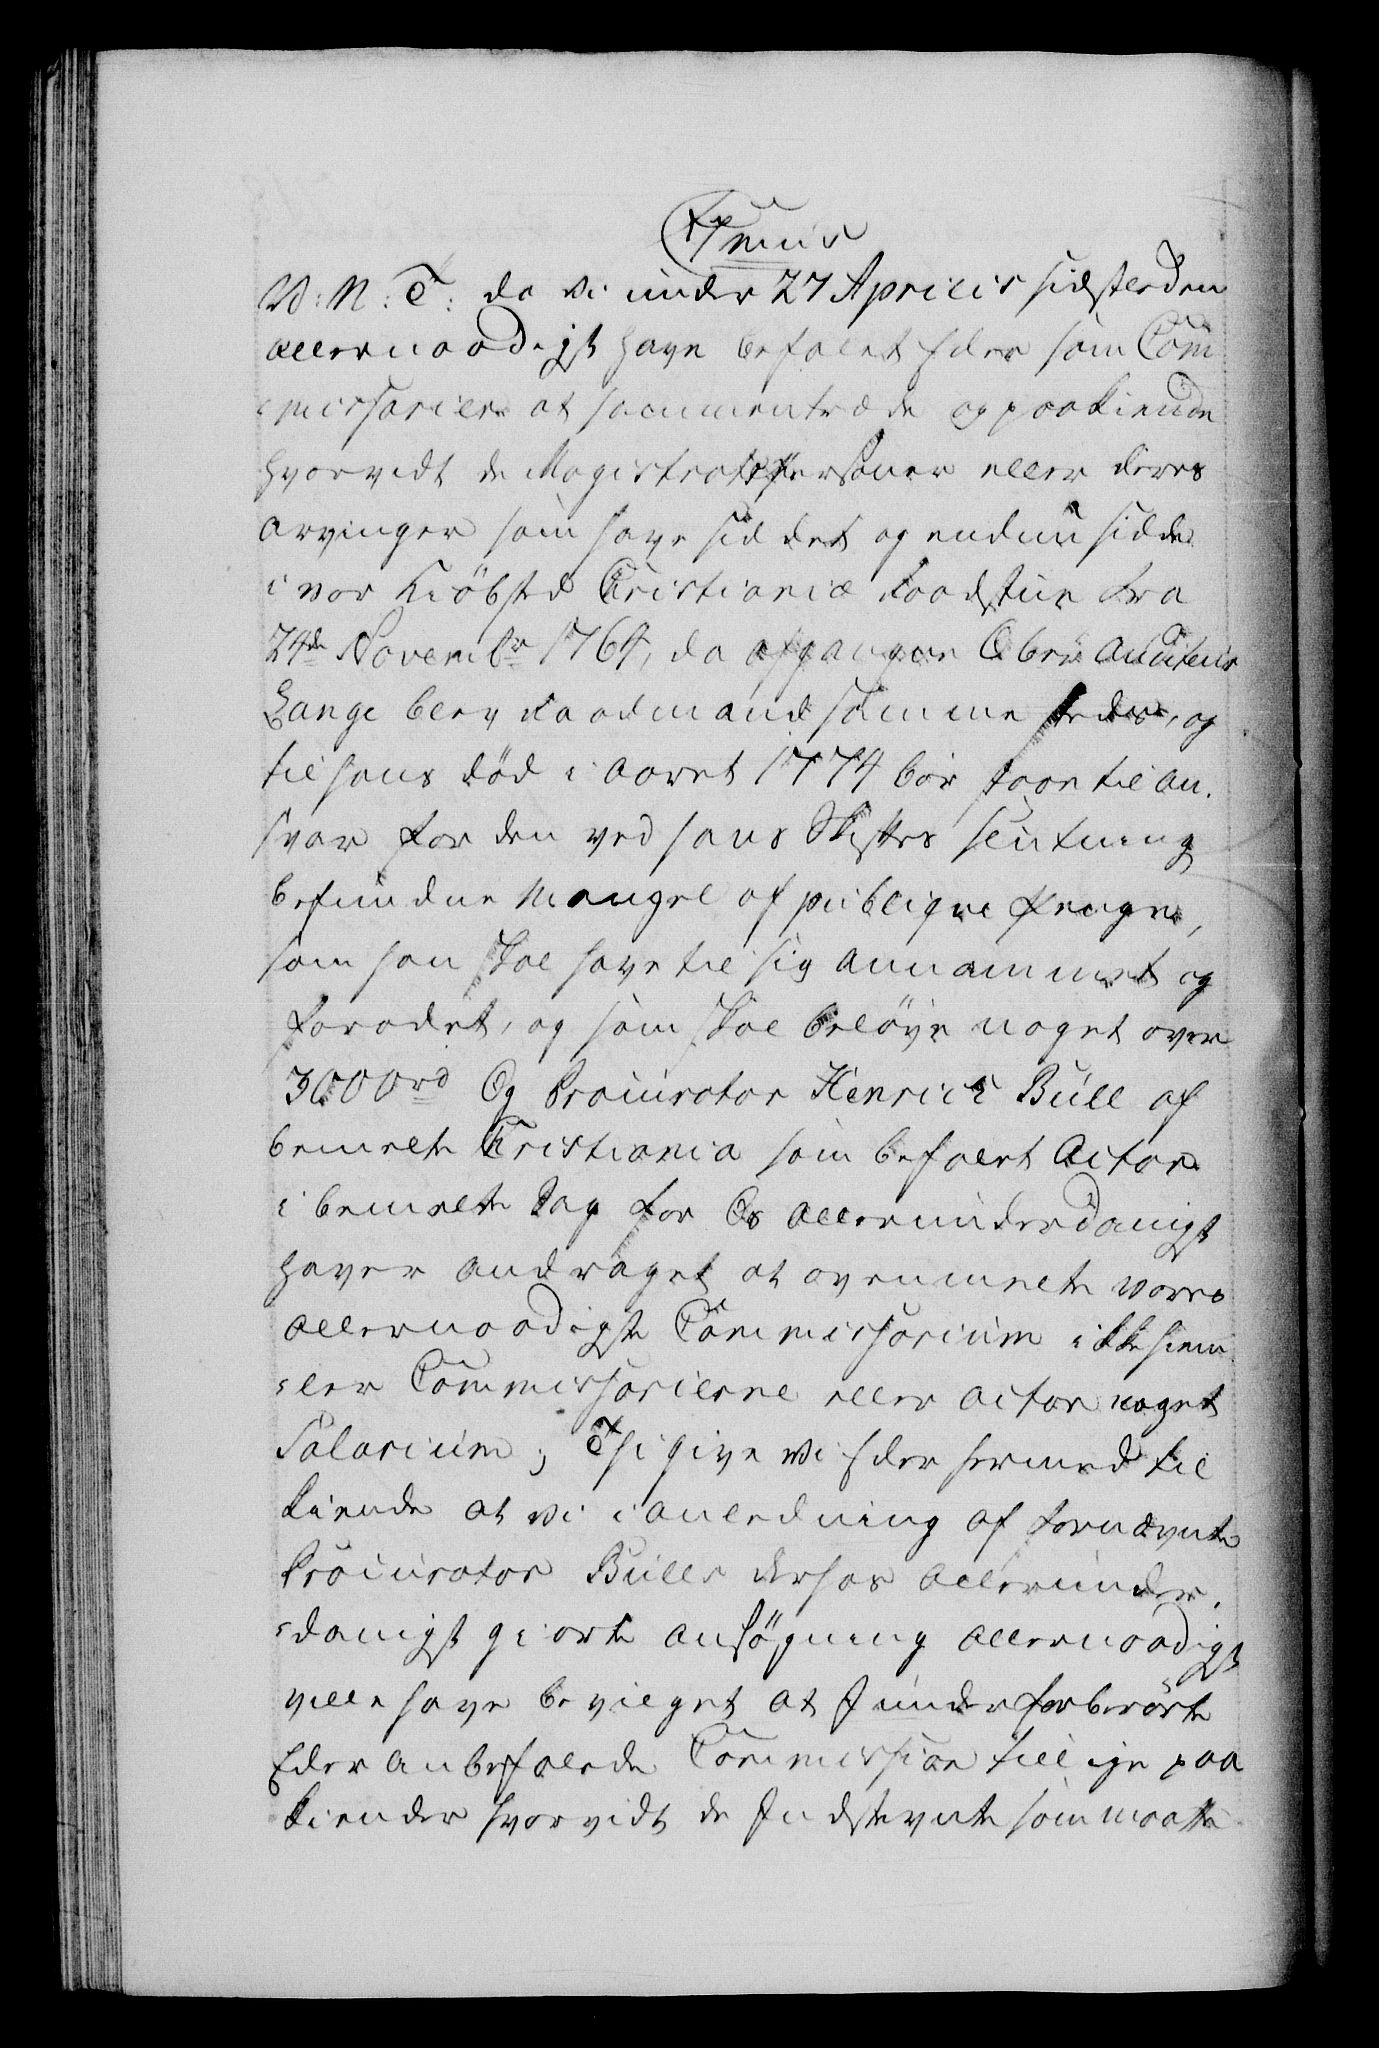 V: N: T: da Vi under 27 Aprilis sidstleden
allernaadigst have befalet Eder som Com
missarier at sammentræde og paakiende
hvorvidt de Magistrats Personer eller deres
arvinger som have siddet og endnu sidde
i vor Kiöbsted Christianiæ Raadstue fra
24de Novembr 1764, da afgangne Ober Auditeur
Lange blev Raadmand samme steds, og
til hans död i Aaret 1774 bör staae til an-
svar for den ved hans Skiftes slutning
befundne Mangel af publique Penge,
som han skal have til sig annammet og
forödet, og som skal belöbe noget over
3000rd Og Procurator Henrich Bull af
bemelte Christiania som befalet Actor
i bemelte Sag for Os allerunderdanigst
haver andraget at ovenmelte vores
allernaadigste Commissorium ikke hiem
-ler Commissarierne eller Actor noget
Salarium; Thi give Vi Eder hermed til
kiende at Vi i anledning af fornævnte
Procurator Bulls derhos allerunder-
-danigst giorte ansögning allernaadigst
ville have bevilget at I under forberörte
Eder anbefalede Commission tillige paa
kiender hvorvidt de Indstevnte som maatte